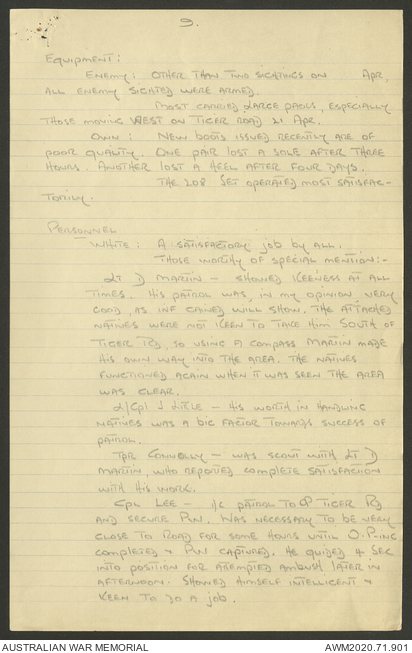 9.
Equipment:
Enemy: Other than two sightings on Apr,
all enemy sighted were armed.
Most carried large packs, especially
those moving West on Tiger Road 21 Apr.
Own: New boots issued recently are of
poor quality. One pair lost a sole after three
hours. Another lost a heel after four days.
The 208 Set operated most satisfac-
torily.
Personnel
White: A satisfactory job by all.
Those worthy of special mention:-
Lt D Martin - showed keeness at all
times. His patrol was, in my opinion very
good, as inf gained will show. The attached
natives were not keen to take him South of
Tiger Rd, so using a compass Martin made
his own way into the area. The natives
functioned again when it was seen the area
was clear.
L/Cpl J Little - His worth in handling
natives was a big factor towards success of
patrol.
Tpr Connolly - was scout with Lt D
Martin, who reported complete satisfaction
with his work.
Cpl Lee - i/c patrol to OP Tiger Rd
and secure PW. Was necessary to be very
close to road for some hours until O.P.ing
completed & PW captured. He guided 4 Sec
into position for attempted ambush later in
afternoon. Showed himself intelligent &
keen to do a job.
AUSTRALIAN WAR MEMORIAL
AWM2020.71.901